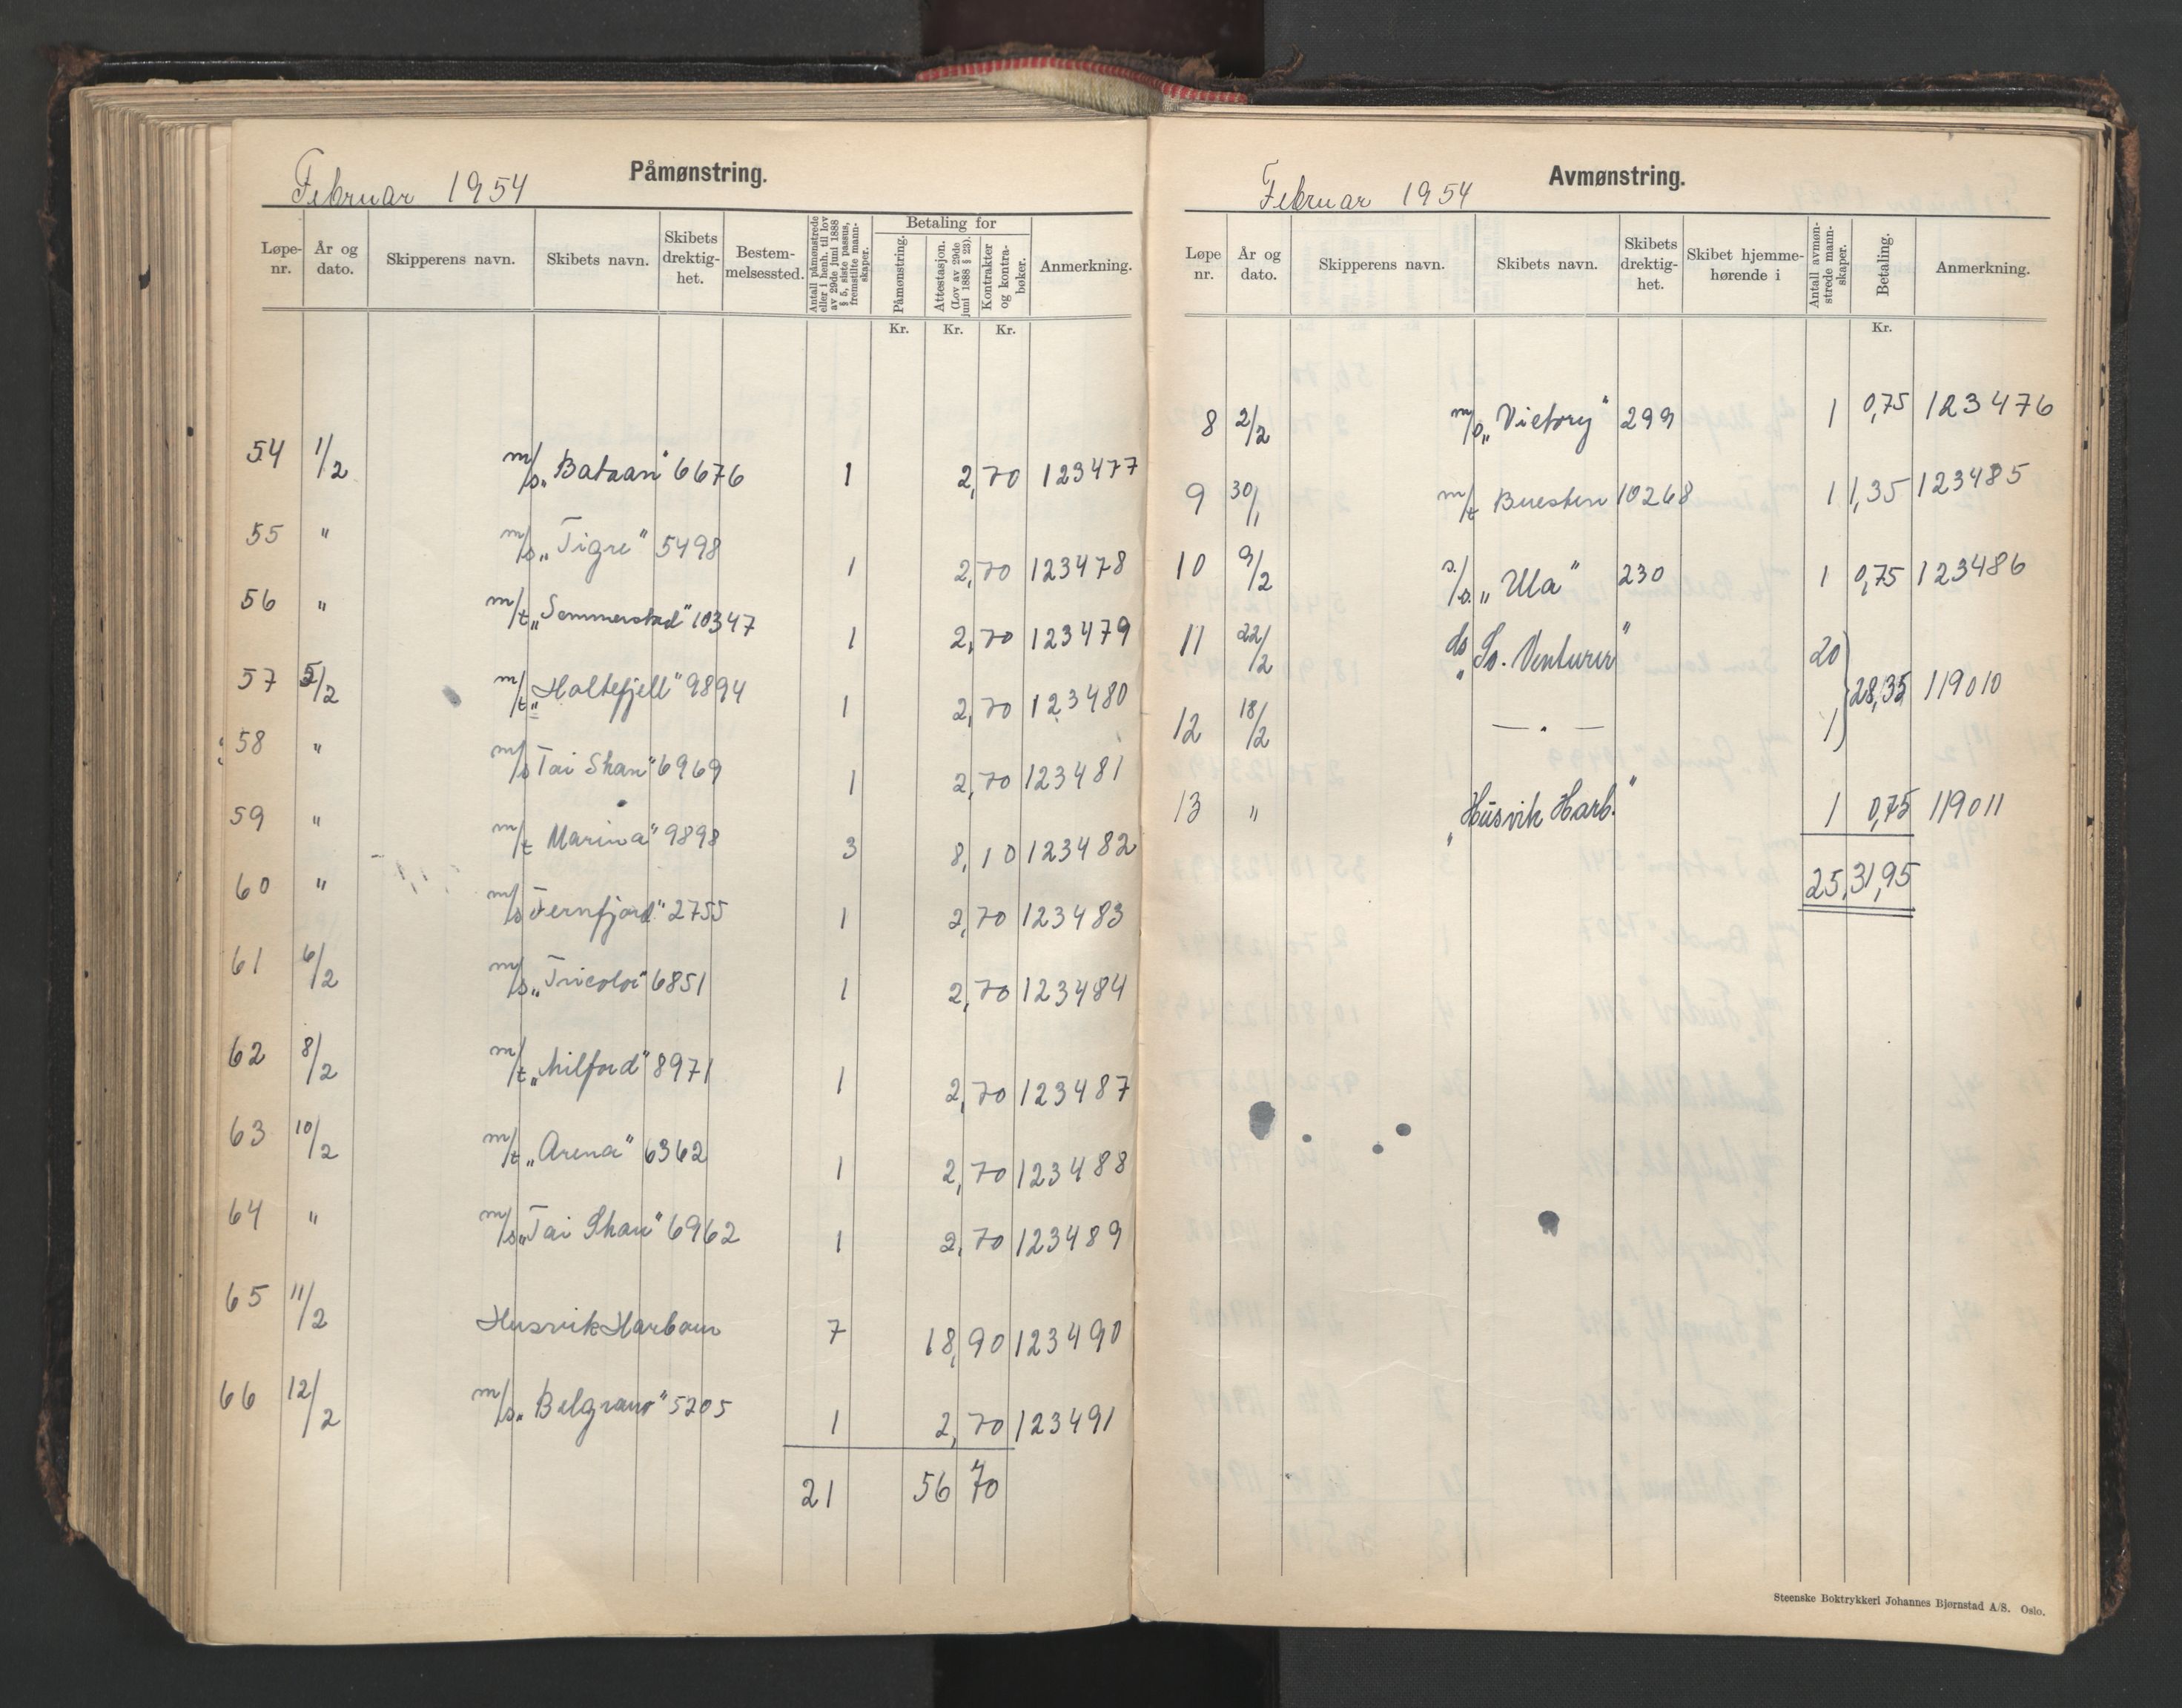 Februar 1954 Påmønstring.
Løpe-nr. År og dato. Skipperens navn. Skibets navn. Skibets drektig-het. Bestem-melsessted. Antall påmønstrede eller i henh. til lov av 29de juni 1888 § 5, siste passus, fremstilte mann-skaper. Betaling for Påmønstring. Attestasjon. (Lov av 29de juni 1888 § 23). Kontrakter og kontra-bøker. Anmerkning.
Kr. Kr. Kr.
54 1/2 m/s „Bataan" 6676 1 2,70 123477
55 " m/s „Tigre" 5498 1 2,70 123478
56 " m/t „Semmerstad" 10347 1 2,70 123479
57 5/2 m/t „Holtefjell" 9894 1 2,70 123480
58 " m/s Tai Shan" 6969 1 2,70 123481
59 " m/t Marina" 9898 3 8,10 123482
60 " m/s Fernfjord" 2755 1 2,70 123483
61 6/2 m/s „Tricolor" 6851 1 2,70 123484
62 8/2 m/t „Milford" 8971 1 2,70 123487
63 10/2 m/t „Arena" 6362 1 2,70 123488
64 " m/s „Tai Shan" 6962 1 2,70 123489
65 11/2 Husvik Harbour 7 18,90 123490
66 12/2 m/s „Belgrano" 5205 1 2,70 123491
21 56 70
Februar 1954 Avmønstring.
Løpe nr. År og dato. Skipperens navn. Skibets navn. Skibets drektig-het. Skibet hjemme-hørende i Antall avmøn-strede mann-skaper. Betaling. Anmerkning.
Kr.
8 2/2 m/s „Victory" 299 1 0,75 123476
9 30/1 m/t Buesten 10268 1 1,35 123485
10 9/2 s./s. „Ula" 230 1 0,75 123486
11 22/2 ds „So. Venturer" 20
28,35 119010
12 18/2 — " — 1
13 " „Husvik Harb." 1 0,75 119011
25, 31,95
Steenske Boktrykkeri Johannes Bjørnstad A/S. Oslo.